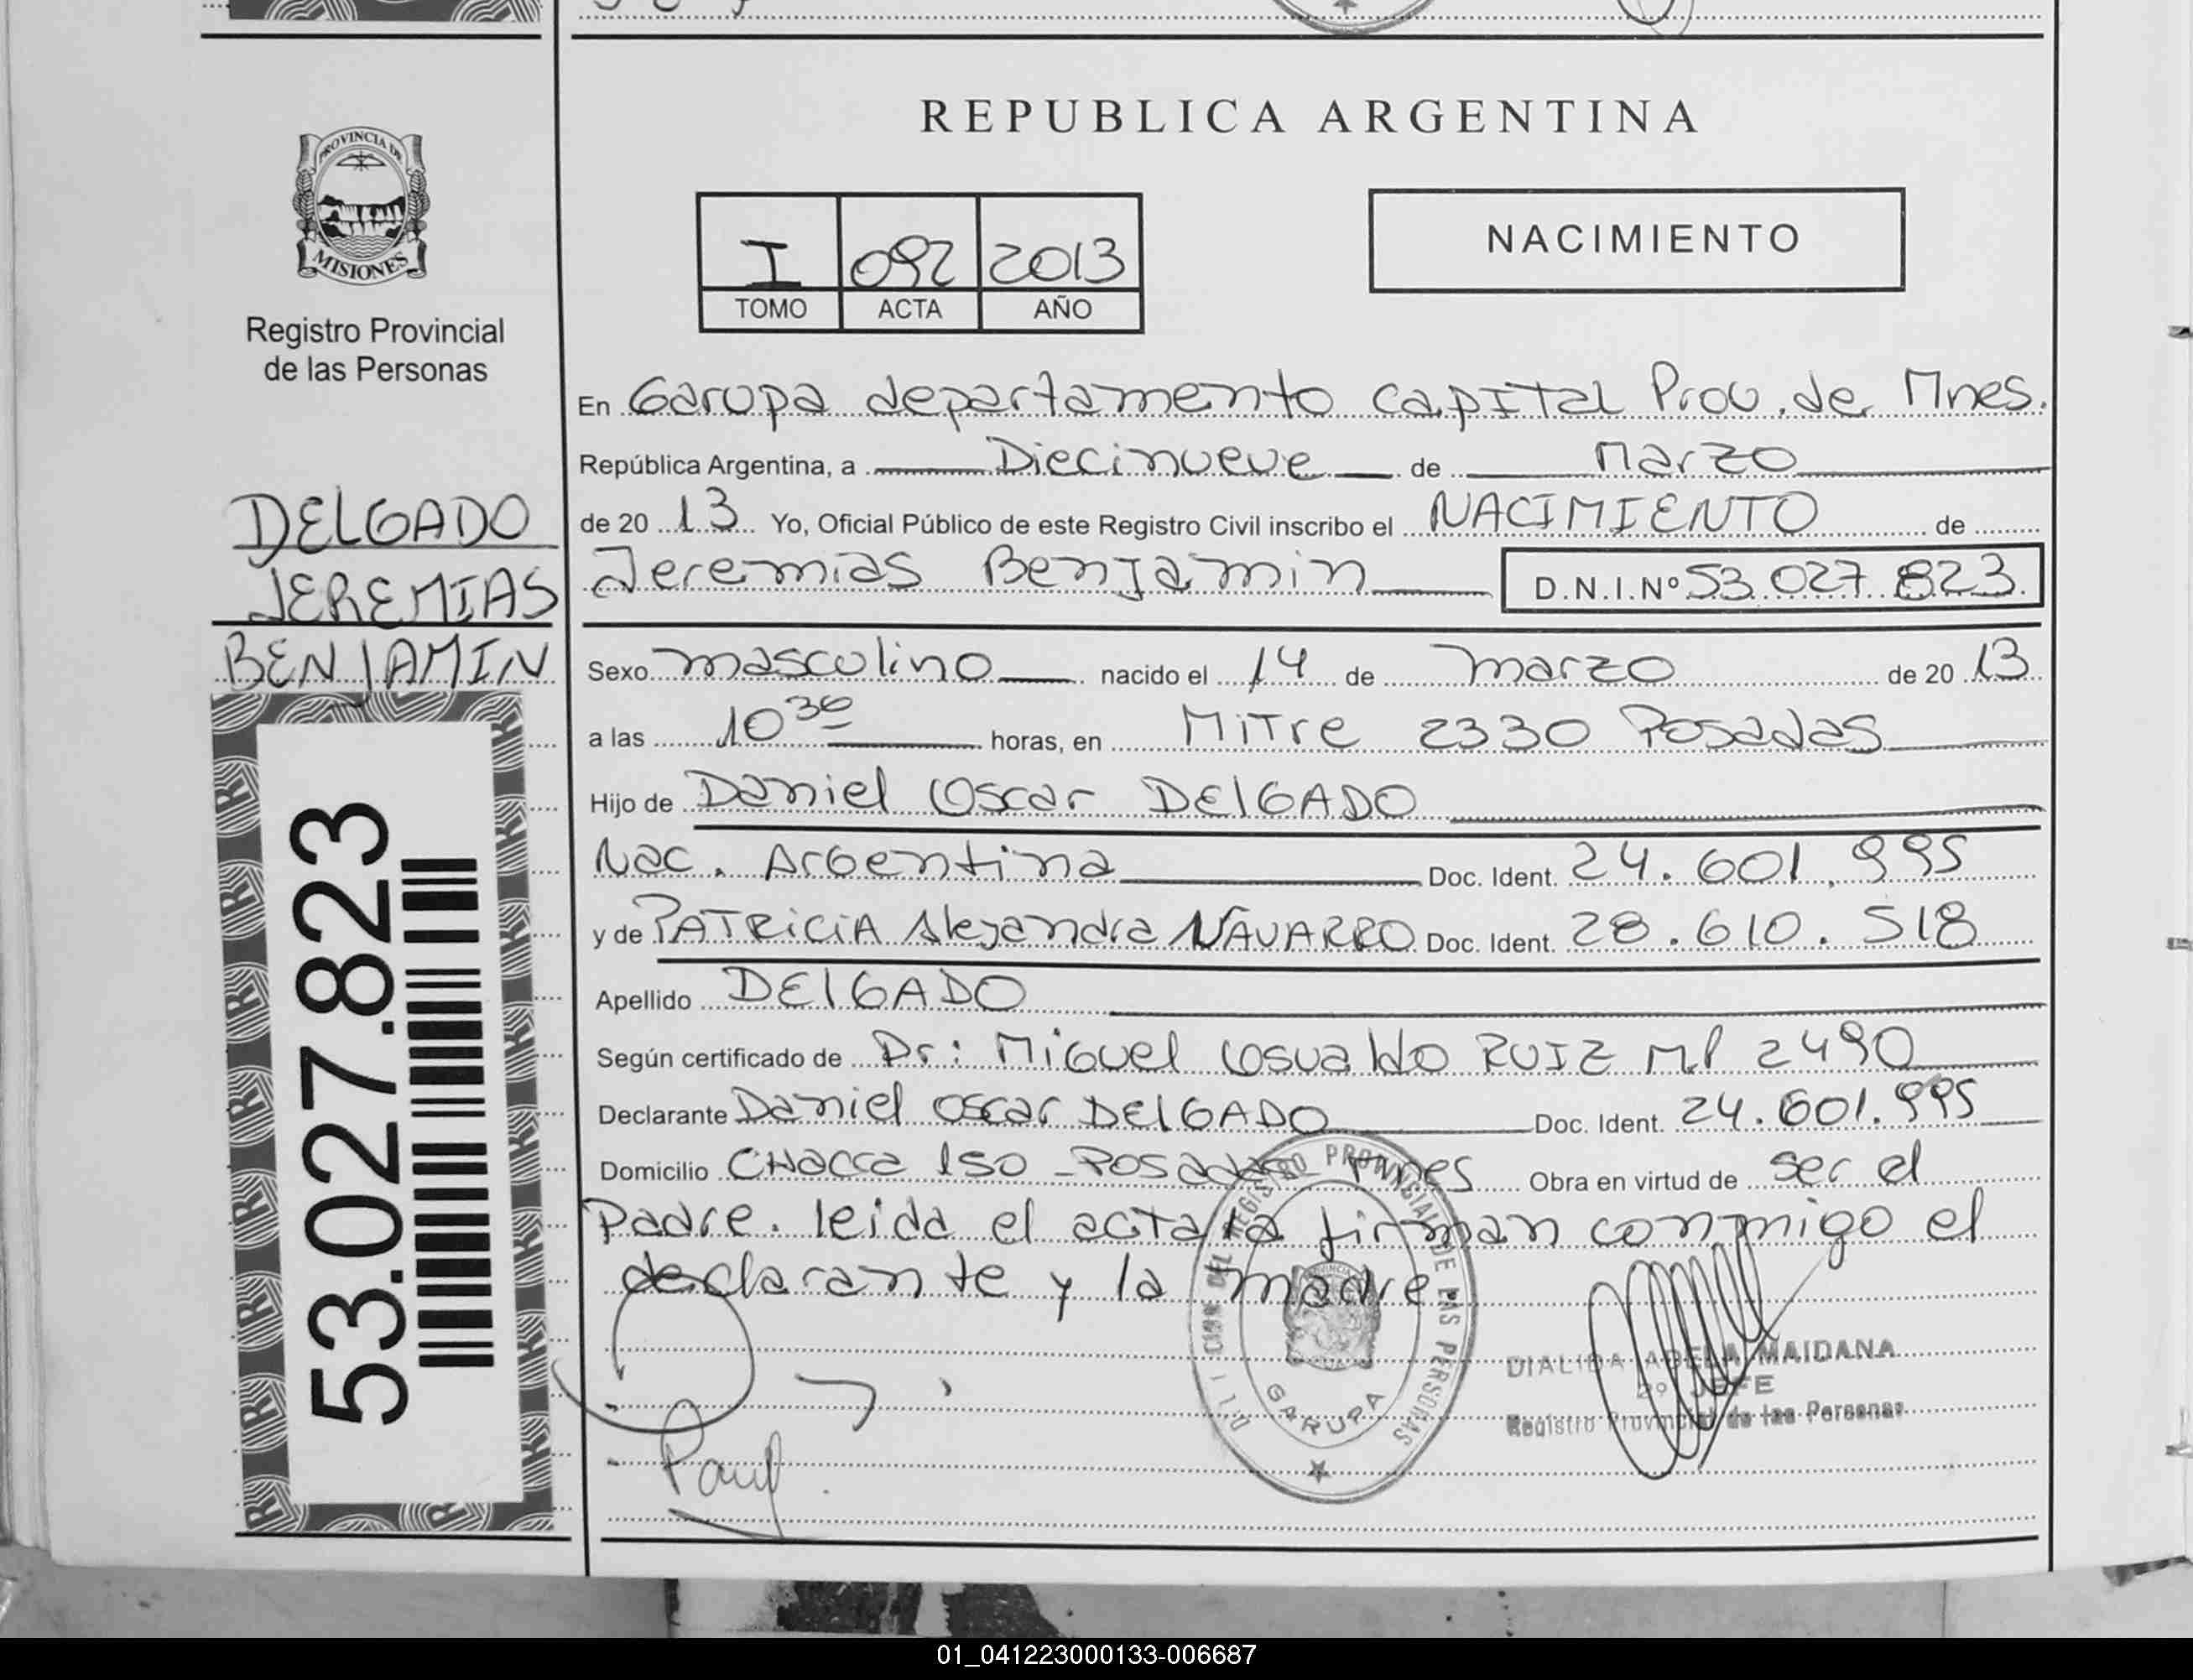 REPUBLICA ARGENTINA
PROVINCIA DE
MISIONES
Registro Provincial
de las Personas
I 092 2013
TOMO ACTA AÑO
NACIMIENTO
DELGADO
JEREMIAS
BENJAMIN
53.027.823
En Garupa departamento CapITal Prov. de Mnes.
República Argentina, a Diecinueve de Marzo
de 20 13 Yo, Oficial Público de este Registro Civil inscribo el NACIMIENTO de
Jeremias Benjamin D.N.I.Nº 53.027.823.
Sexo masculino nacido el 14 de marzo de 20 13
a las 10 30 horas, en Mitre 2330 Posadas
Hijo de Daniel Oscar DElGADO
Nac. Argentina Doc. Ident. 24.601.995
y de PATRiCiA Alejandra NAVARRO Doc. Ident. 28.610.518
Apellido DElGADO
Según certificado de Dr: Miguel Osvaldo RUIZ M.P 2490
Declarante Daniel Oscar DElGADO Doc. Ident. 24.601.995
Domicilio CHacra 150 - Posadas Mnes Obra en virtud de ser el
Padre. leida el acta la firman conmigo el
declarante y la madre.
REGISTRO PROVINCIAL DE LAS PERSONAS
GARUPA
ADELA MAIDANA
2º JEFE
Registro Provincial de las Personas
01_041223000133-006687